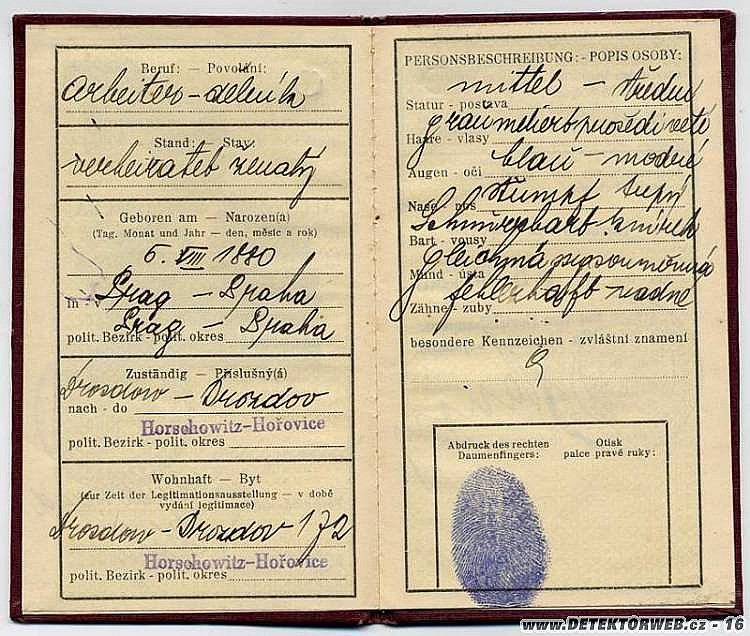 Beruf: — Povolání:
Arbeiter - dělník
Stand: — Stav:
verheiratet ženatý
Geboren am — Narozen(a)
(Tag, Monat und Jahr — den, měsíc a rok)
6. VIII 1880
in - v Prag - Praha
Prag - Praha
polit. Bezirk - polit. okres
Zuständig — Příslušný(á)
Drosdow - Drozdov
nach - do
Horschowitz-Hořovice
polit. Bezirk - polit. okres
Wohnhaft — Byt
(zur Zeit der Legitimationsausstellung — v době
vydání legitimace)
Drosdow - Drozdov 172
Horschowitz-Hořovice
polit. Bezirk - polit. okres
PERSONSBESCHREIBUNG: - POPIS OSOBY:
mittel - střední
Statur - postava
graumeliert prošedivělé
Haare - vlasy
blau - modré
Augen - oči
Nase - nos stumpf tupý
Schnurrbart knírek
Bart - vousy
Mund - ústa
fehlerhaft vadné
Zähne - zuby
besondere Kennzeichen - zvláštní znamení
Abdruck des rechten Otisk
Daumenfingers: palce pravé ruky:
www.DETEKTORWEB.cz - 16